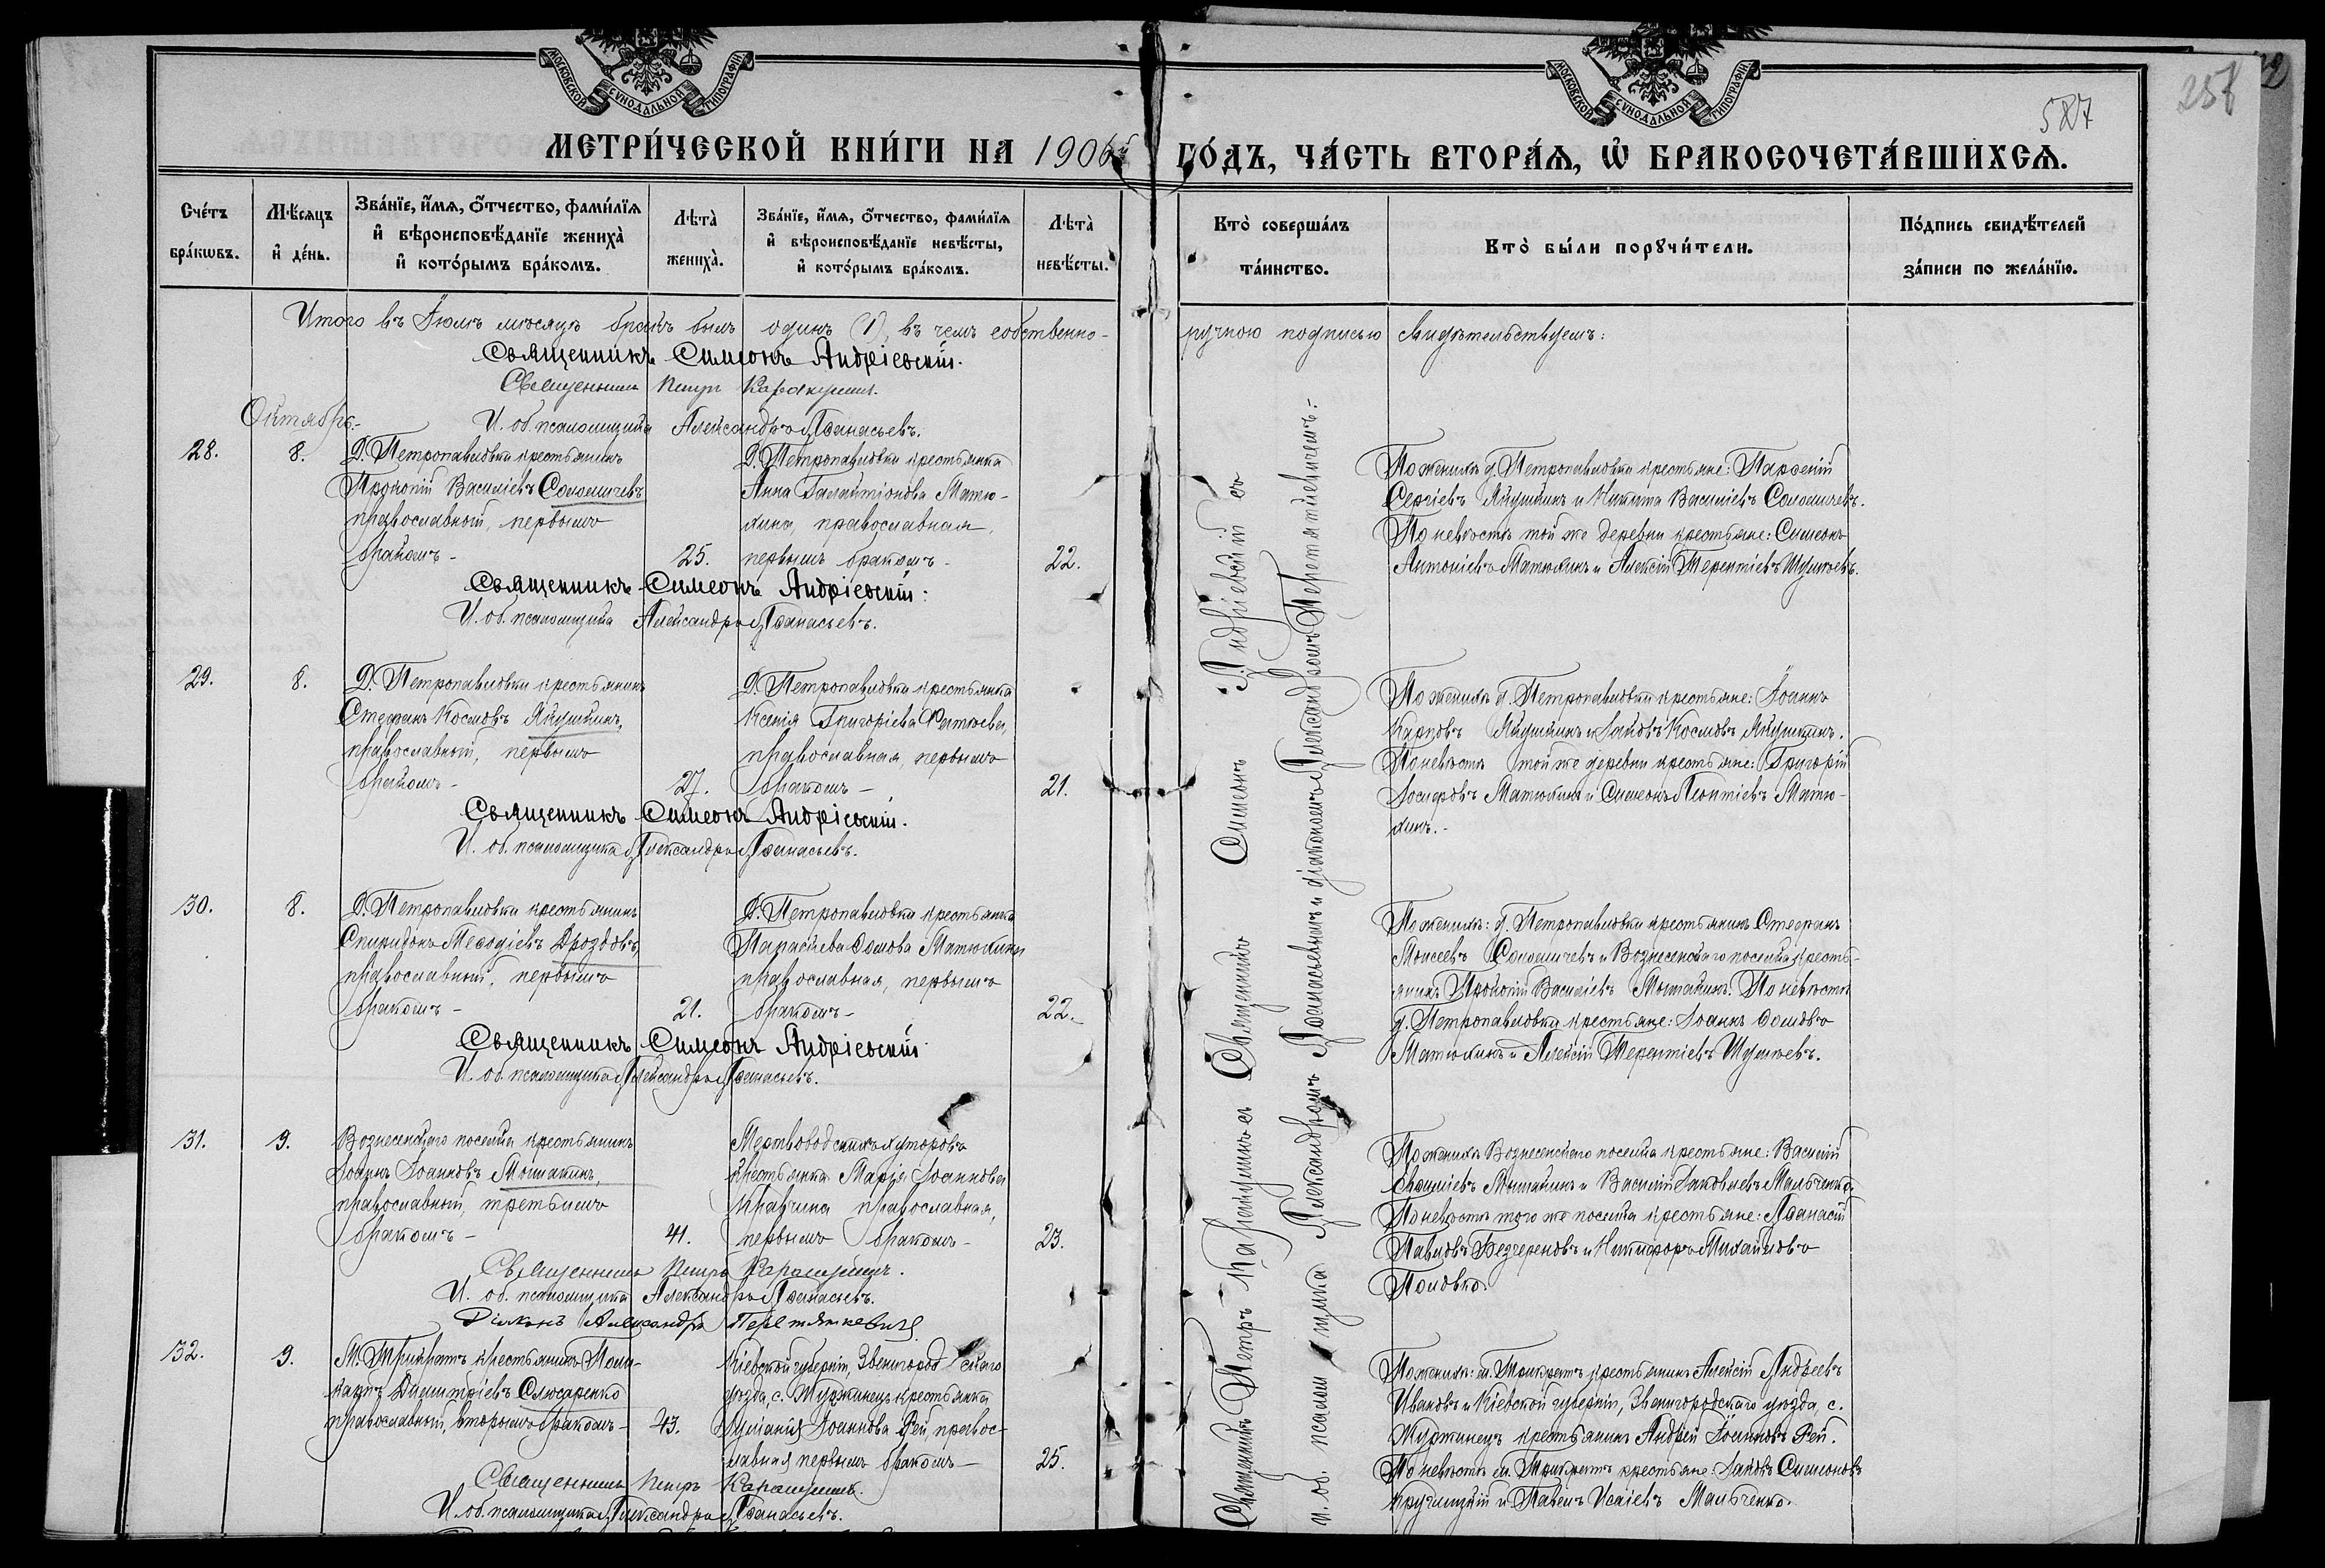 МОСКОВСКОЙ СѴНОДАЛЬНОЙ ТИПОГРАФІИ
МОСКОВСКОЙ СѴНОДАЛЬНОЙ ТИПОГРАФІИ
587
МЕТРИ́ЧЕСКОЙ КНИ́ГИ НА 1906й ГО́ДЪ, ЧА́СТЬ ВТОРА́Я, Ѡ БРАКОСОЧЕТА́ВШИХСЯ.
Сче́тъ бра́ковъ.
Мѣ́сяцъ и де́нь.
Зва́нїе, и́мя, о́тчество, фами́лїя
и вѣроисповѣ́данїе жениха̀
и кото́рымъ бра́комъ.
Лѣта̀ жениха̀.
Зва́нїе, и́мя, о́тчество, фами́лїя
и вѣроисповѣ́данїе невѣ́сты,
и кото́рымъ бра́комъ.
Лѣта̀ невѣ́сты.
Кто̀ соверша́лъ та́инство.
Кто̀ бы́ли порꙋчи́тели.
По́дпись свидѣ́телей
за́писи по жела́нїю.
Итого въ Іюлѣ мѣсяцѣ бракъ былъ одинъ (1), въ чемъ собственно-
ручною подписью свидѣтельствуемъ:
Священникъ Симеонъ Андріевскій.
Священникъ Петръ
И. об. псаломщика Александръ Аѳанасьевъ.
Октябрь.
28.
8.
Д. Петропавловки крестьянинъ
Прокопій Василіевъ Соломичевъ
православный, первымъ
бракомъ -
25.
Д. Петропавловки крестьянка
Анна Галактіонова Матю-
хина, православная,
первымъ бракомъ -
22.
По женихѣ д. Петропавловки крестьяне:
Сергіевъ Якушкинъ и Никита Василіевъ Соломичевъ.
По невѣстѣ той же деревни крестьяне: Симеонъ
Антоніевъ Матюхинъ и Алексій Терентіевъ
Священникъ Симеонъ Андріевскій.
И. об. псаломщика Александръ Аѳанасьевъ.
29.
8.
Д. Петропавловки крестьянинъ
Стефанъ Космовъ Якушкинъ,
православный, первымъ
бракомъ -
27.
Д. Петропавловки крестьянка
Ксенія Григоріева
православная, первымъ
бракомъ -
21.
По женихѣ д. Петропавловки крестьяне: Іоаннъ
Карповъ Якушкинъ и Іаковъ Космовъ Якушкинъ.
По невѣстѣ той же деревни крестьяне: Григорій
Іосифовъ Матюхинъ и Симеонъ Леонтіевъ Матю-
хинъ.-
Священникъ Симеонъ Андріевскій.
И. об. псаломщика Александръ Аѳанасьевъ.
30.
8.
Д. Петропавловки крестьянинъ
Спиридонъ Меѳодіевъ Дроздовъ,
православный, первымъ
бракомъ -
21.
Д. Петропавловки крестьянка
Параскева Ѳомова Матюхина
православная, первымъ
бракомъ -
22.
По женихѣ: д. Петропавловки крестьянинъ Стефанъ
Моисеевъ Соломичевъ и Вознесенскаго поселка кресть-
янинъ Прокопій Василіевъ Мошакинъ. По невѣстѣ
д. Петропавловки крестьяне: Іоаннъ Ѳомовъ
Матюхинъ и Алексій Терентіевъ
Священникъ Симеонъ Андріевскій
И. об. псаломщика Александръ Аѳанасьевъ.
31.
9.
Вознесенскаго поселка крестьянинъ
Іоаннъ Іоанновъ Мошакинъ,
православный, третьимъ
бракомъ -
41.
Мертвоводскихъ хуторовъ
крестьянка Марія Іоаннова
Кравчина православная,
первымъ бракомъ -
23.
По женихѣ Вознесенскаго поселка крестьяне: Василій
Мошакинъ и Василій Іаковлевъ Мальченко.
По невѣстѣ того же поселка крестьяне: Аѳанасій
Павловъ и Никифоръ Михайловъ
Священникъ Петръ
И. об. псаломщика Александръ Аѳанасьевъ.
Діаконъ Александръ Перетяткевичъ
32.
9.
М. Трикратъ крестьянинъ
Димитріевъ Слюсаренко
православный, вторымъ бракомъ -
43.
Кіевской губерніи, Звенигородскаго
уѣзда, с. Журжинецъ крестьянка
Іуліанія Іоаннова Рей, правос-
лавная первымъ бракомъ -
25.
По женихѣ: м. Трикратъ крестьянинъ Алексій Андреевъ
Ивановъ и Кіевской губерніи, Звенигородскаго уѣзда, с.
Журжинецъ крестьянинъ Андрей Іоанновъ Рей.
По невѣстѣ м. Трикратъ крестьяне: Іаковъ Симеоновъ
и Павелъ Исаіевъ Мальченко.
Священникъ Петръ
И. об. псаломщика Александръ Аѳанасьевъ.
Священникъ Петръ съ Священникъ Симеонъ Андріевскій съ
и. об. псаломщика Александромъ Аѳанасьевымъ и діакономъ Александромъ Перетяткевичемъ.-